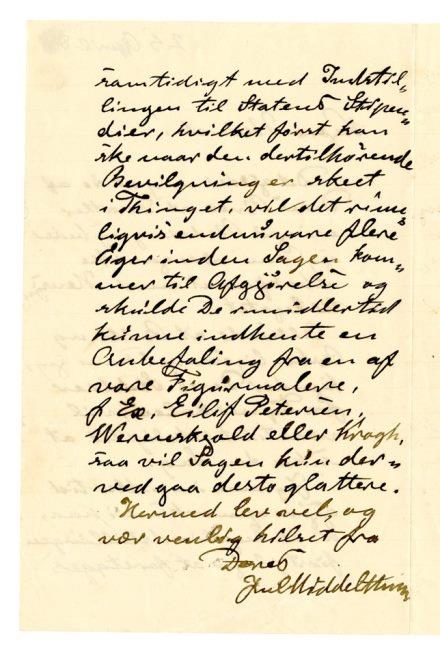 samtidigt med Indstil„
lingen til Statens Stipen„
dier, hvilket først kan
ske naar den dertilhörende
Bevilgning er skeet
i Thinget, vil det rime„
ligvis endnu vare flere
Uger inden Sagen kom„
mer til Afgjörelse og
skulde De imidlertid
kunne indhente en
Anbefaling fra en af
vore Figurmalere,
f Ex. Eilif Petersen,
Werenskjold eller Krogh,
saa vil Sagen kun der„
ved gaa desto glattere.
Hermed lev vel, og
vær venlig hilset fra
Deres
Jul Middelthun